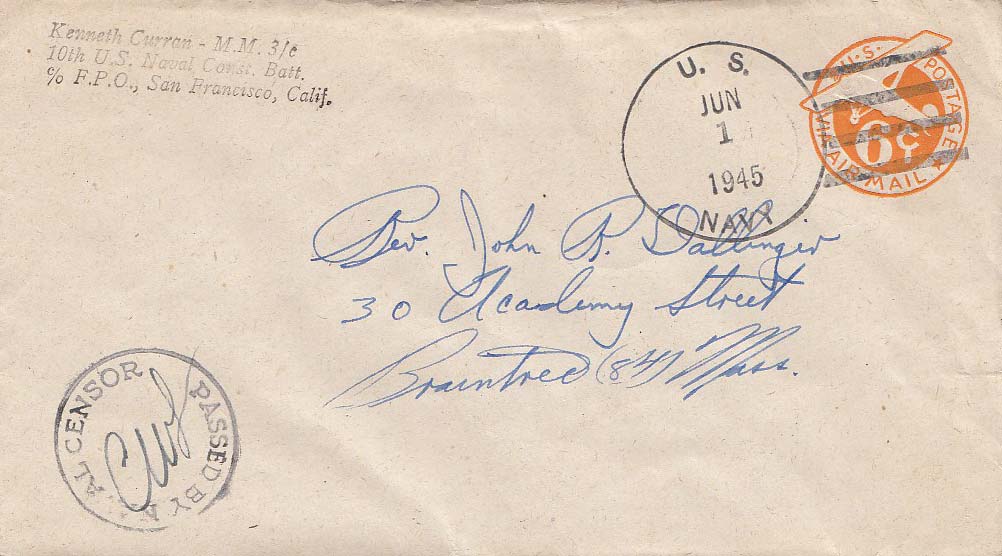 Kenneth Curran - M.M. 3/c
10th U.S. Naval Const. Batt.
c/o F.P.O., San Francisco, Calif.
U. S.
JUN
1
1945
NAVY
U.S. POSTAGE
6¢
VIA AIR MAIL
Rev. John B. Dallinger
30 Academy Street
Braintree (84) Mass.
PASSED BY N AL CENSOR